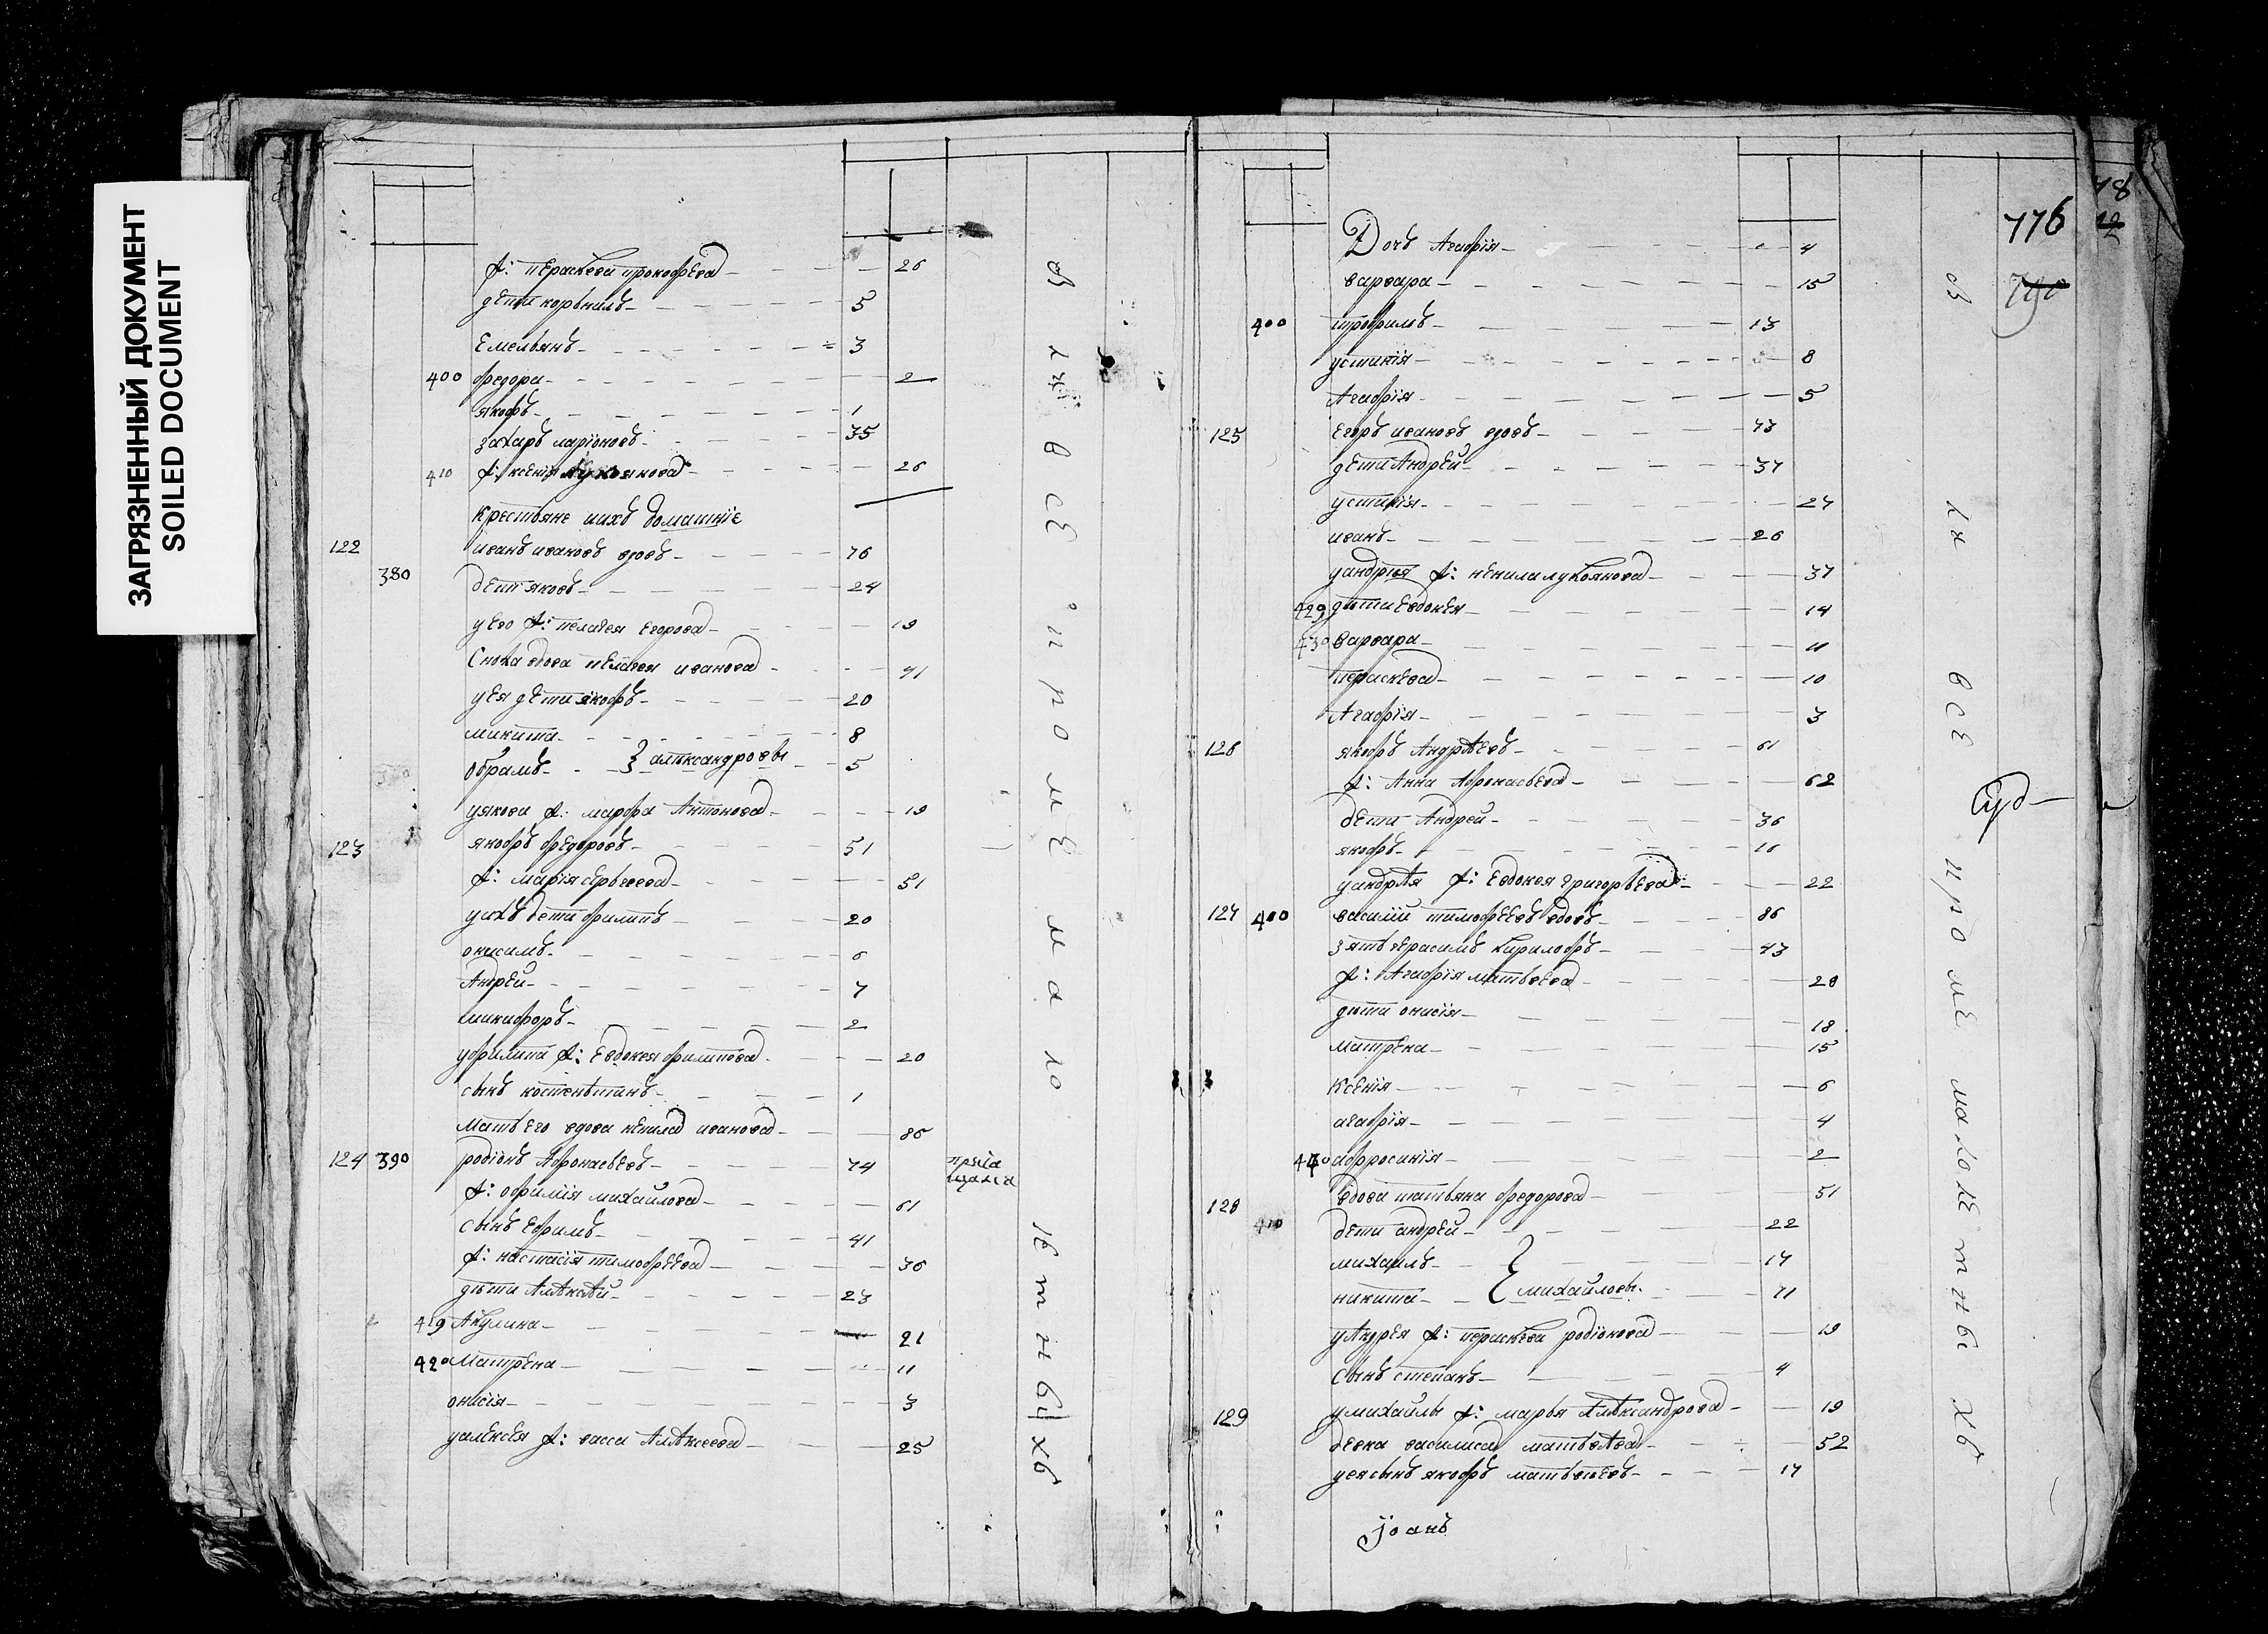 ЗАГРЯЗНЕННЫЙ ДОКУМЕНТ
SOILED DOCUMENT
ж: перасковя прокофева 26
дети корънилъ 5
Емельянъ 3
400 федора 2
якофъ 1
захаръ ларионовъ 35
410 ж: ксения лукоянова 26
крестьяне ихъ домашние
122 иванъ ивановъ вдовъ 76
380
дети яковъ 24
у его ж: пелагея Егорова 19
Сноха вдова пелагея иванова 41
у ея дети якофъ 20
микита 8
обрамъ } алѣксандровы 5
у якова ж: марфа Антонова 19
123 якофъ федоровъ 51
ж: мария сергеева 51
у ихъ дети филипъ 20
онисимъ 6
Андрей 7
микифоръ 2
у филипа ж: Евдокея филипова 20
сынъ костентинъ 1
мать его вдова ненила иванова 86
124 390 родионъ Афонасьевъ 74
ж: офимия михайлова 61
сынъ Ефимъ 41
ж: настасия тимофеева 36
дѣти Алѣксѣй 23
419 Акулина 21
420 Матрена 11
онисия 3
у алексея ж: васса Алѣксеева 25
всѣ кромѣ малолетныхъ
776
78
Дочь Агафия 4
варвара 15
400 трофимъ 13
устиния 8
Агафия 5
125 Егоръ ивановъ вдовъ 73
дети Андрей 37
устиния 24
иванъ 26
у андрея ж: ненила лукоянова 37
429 дѣти Евдокея 14
430 варвара 11
перасковa 10
Агафия 3
126 якофъ Андрѣевъ 61
ж: Анна Афонасьева 62
дети Андрей 36
якофъ 16
у андрѣя ж: Евдокея григорьева 22
127 400 василий тимофеевъ вдовъ 86
зять герасимъ кирилофъ 43
ж: Агафия матвеева 28
дѣти онисия 18
матрена 15
Ксения 6
агафия 4
440 афросиния 2
128 вдова татьяна федорова 51
410 дети андрей 22
михаилъ 17
никита } михайловы 11
у Андрея ж: перасковя родионова 19
сынъ степанъ 4
129 у михайлы ж: марья Алѣксандрова 19
девка василиса матвѣева 52
у ея сынъ якофъ матвеевъ 17
всѣ кромѣ малолетныхъ
иоанъ